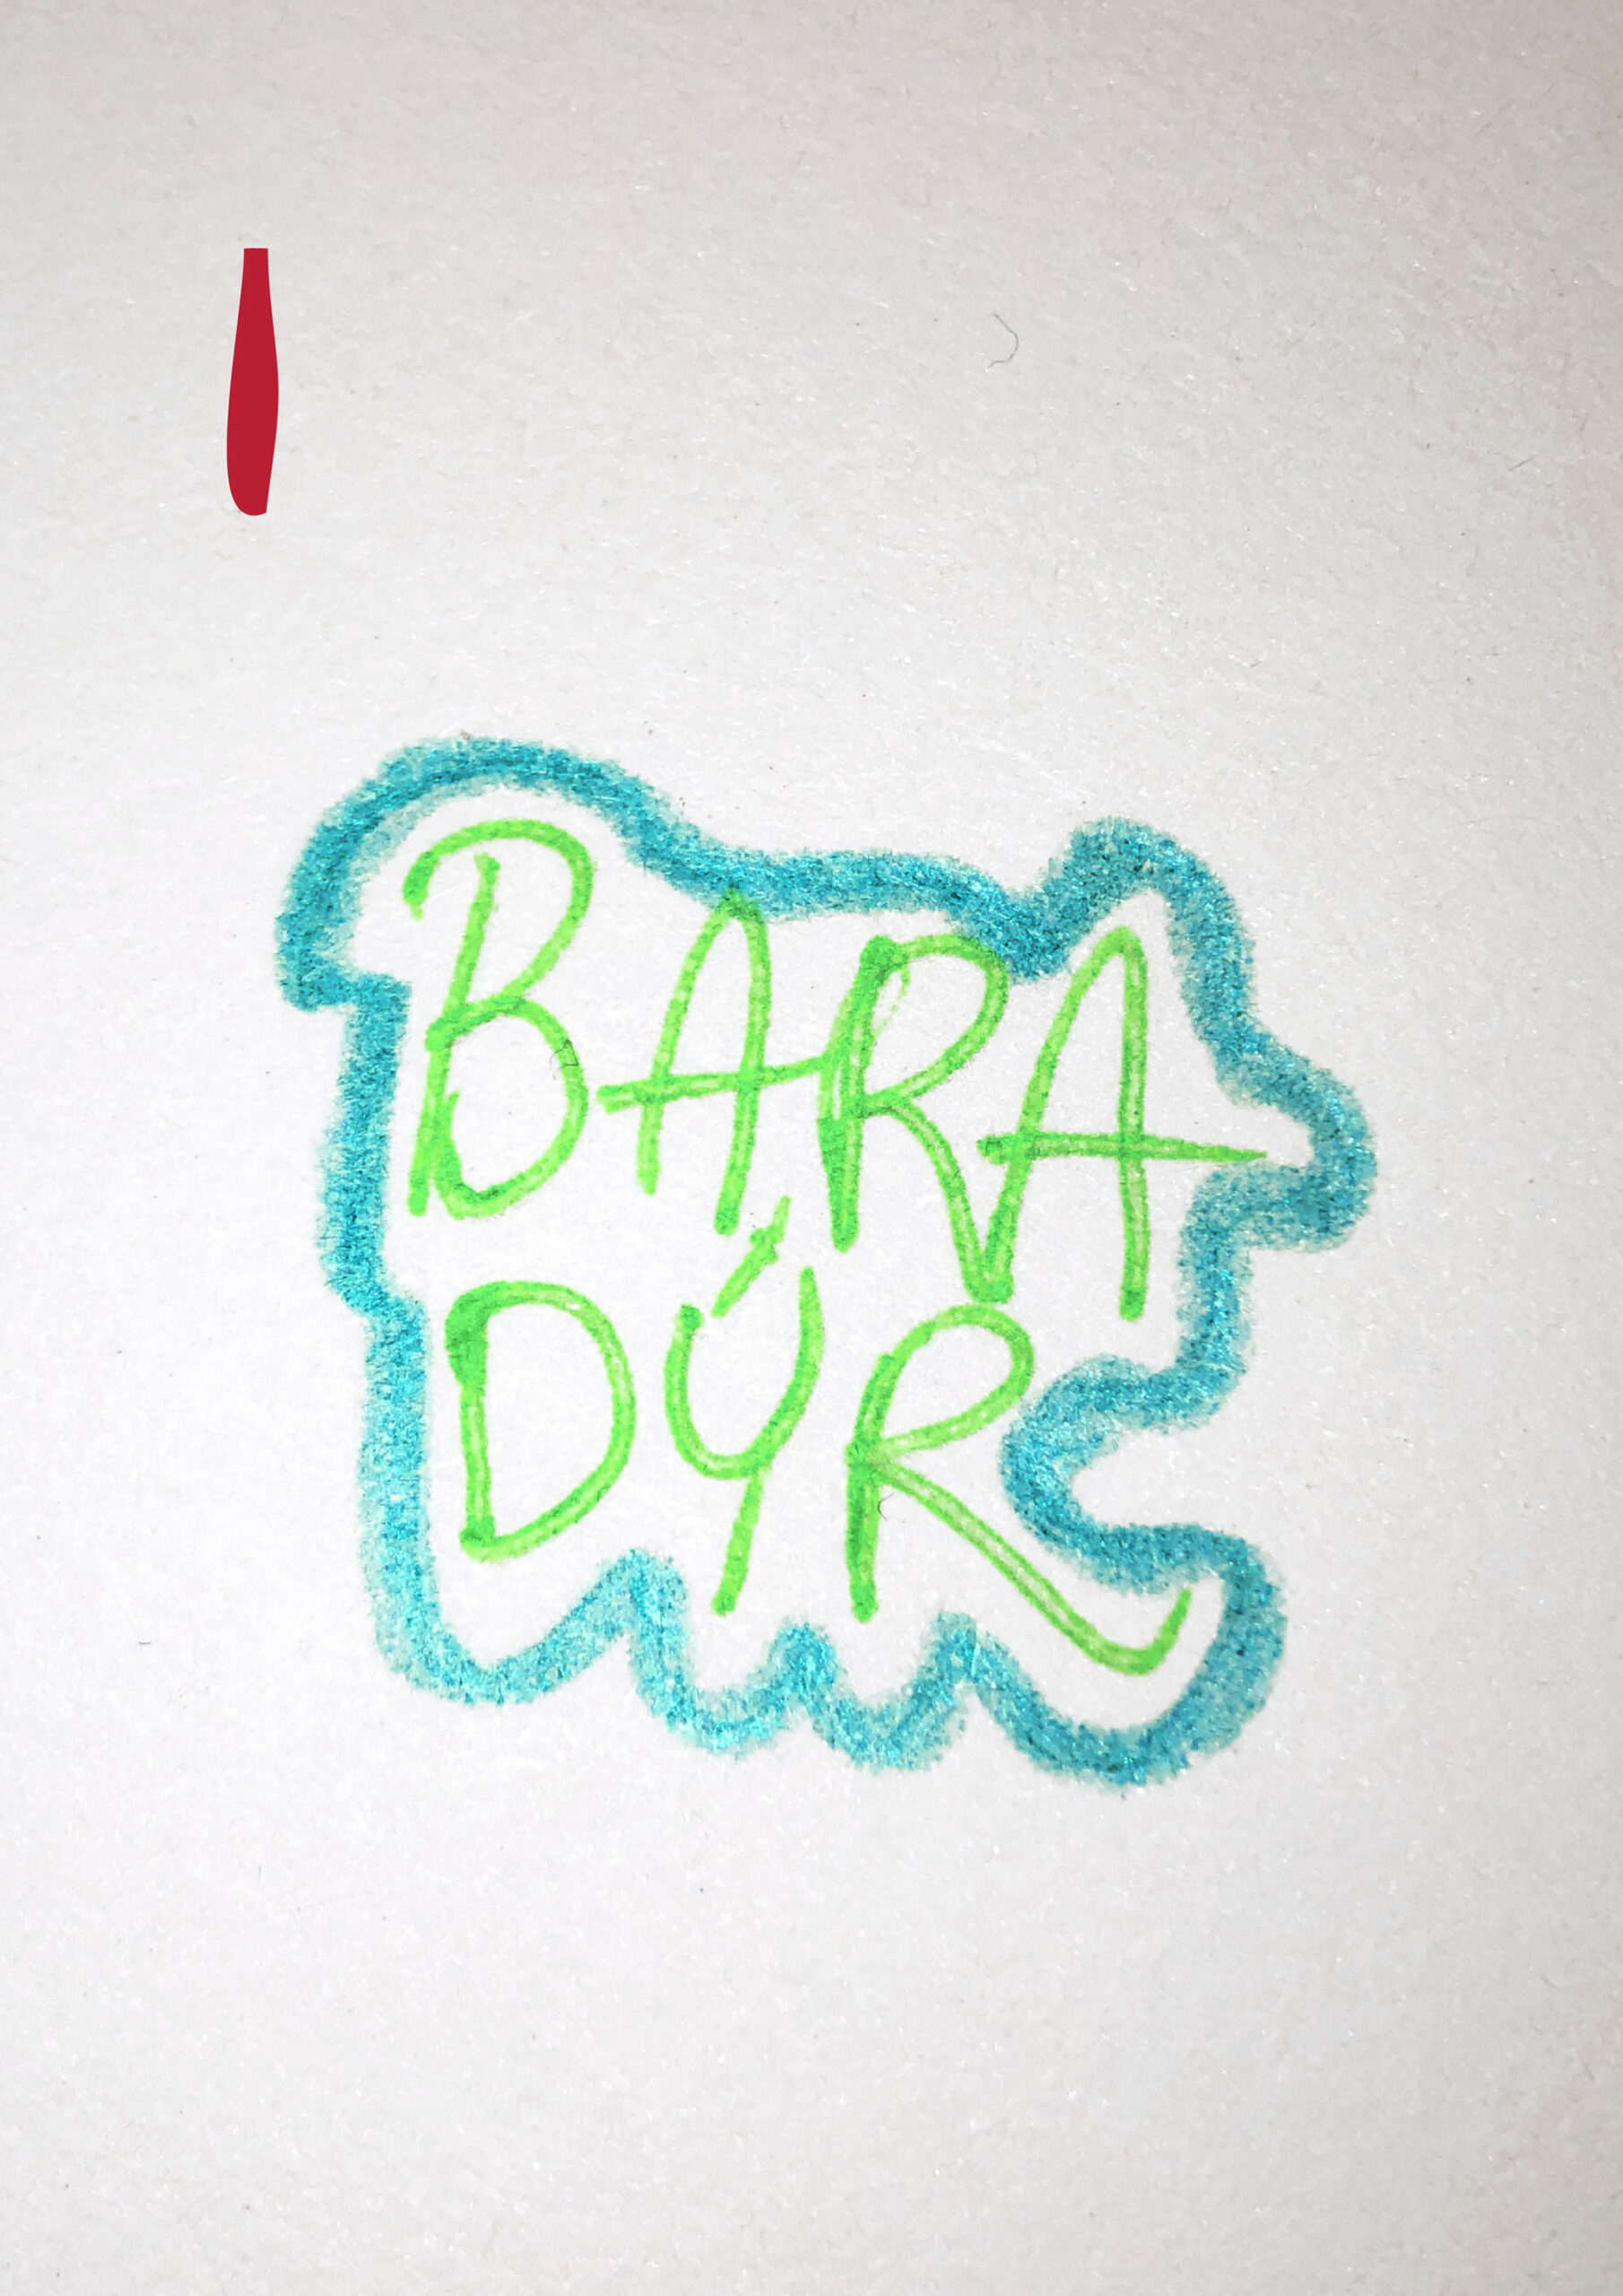 1
BARA
DÝR